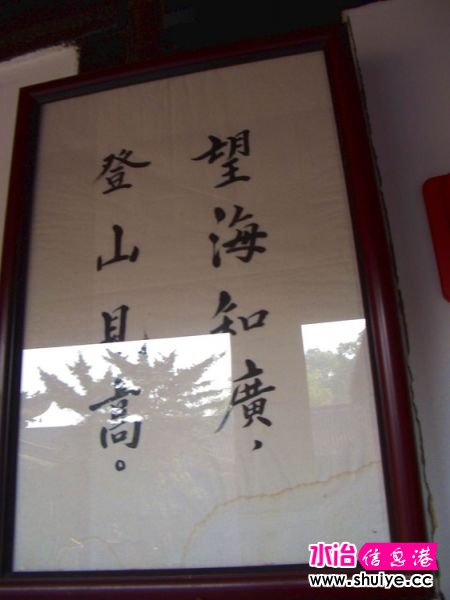 望海知廣，
登山見高。
水冶信息港
www.shuiye.cc